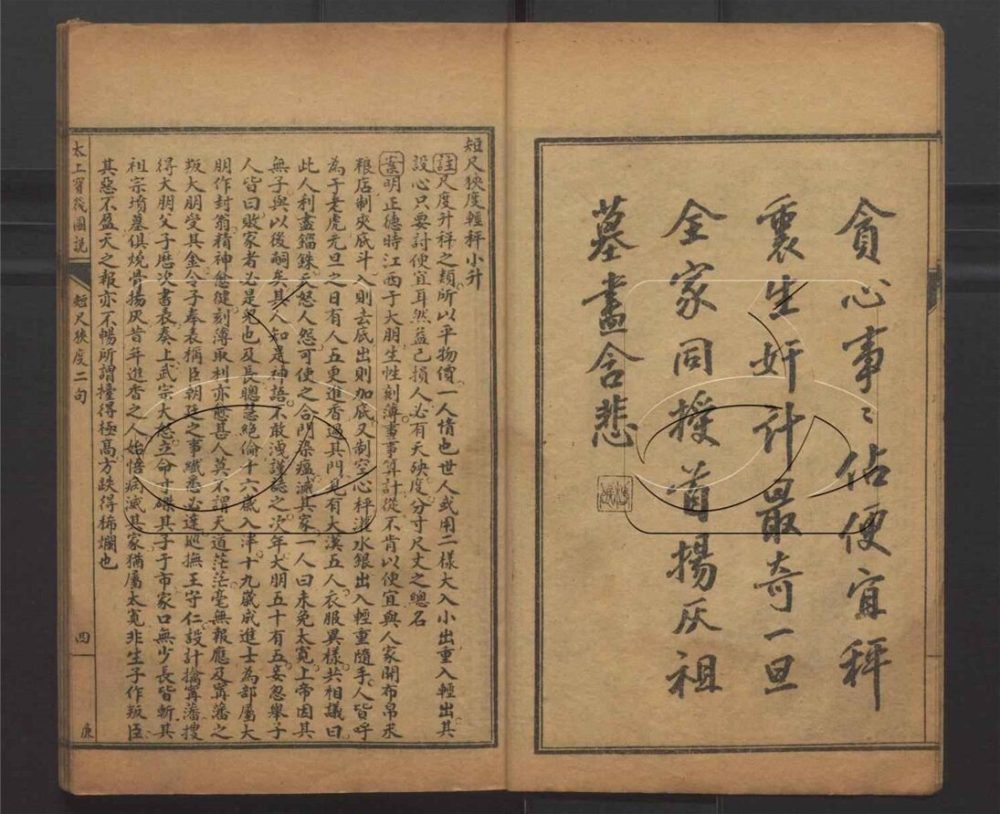 貪心事〻佔便宜秤
裏生奸計最奇一旦
全家同授首揚灰祖
墓盡含悲
短尺狹度輕秤小升
註尺度升秤之類所以平物價一人情也世人或用二樣大入小出重入輕出其
設心只要討便宜耳然益己損人必有天殃度分寸尺丈之總名
案明正德時江西于大朋生性刻薄事事算計從不肯以便宜與人家開布帛米
糧店制夾底斗入則去底出則加底又制空心秤灌水銀出入輕重隨手人皆呼
為于老虎元旦之日有人五更進香過其門見有大漢五人衣服異樣共相議曰
此人利盡錙銖天怒人怨可使之合門染瘟滅其家一人曰未免太寬上帝因其
無子與以後嗣矣其人知是神語不敢洩謹誌之次年大朋五十有五妾忽舉子
人皆曰敗家者必是兒也及長聰慧絕倫十六歲入泮十九歲成進士為部屬大
朋作封翁精神愈健刻薄取利亦愈甚人莫不謂天道茫茫毫無報應及寗藩之
叛大朋受其金令子奉表稱臣朝廷之事纖悉必達廵撫王守仁設計擒寗藩搜
得大朋父子歷次書表奏上武宗大怒立命寸磔其子于市家口無少長皆斬其
祖宗墳墓俱燒骨揚灰昔年進香之人始悟病滅其家猶屬太寬非生子作叛臣
其惡不盈天之報亦不暢所謂擡得極高方跌得稀爛也
太上寶筏圖説
短尺狹度二句
四
庚